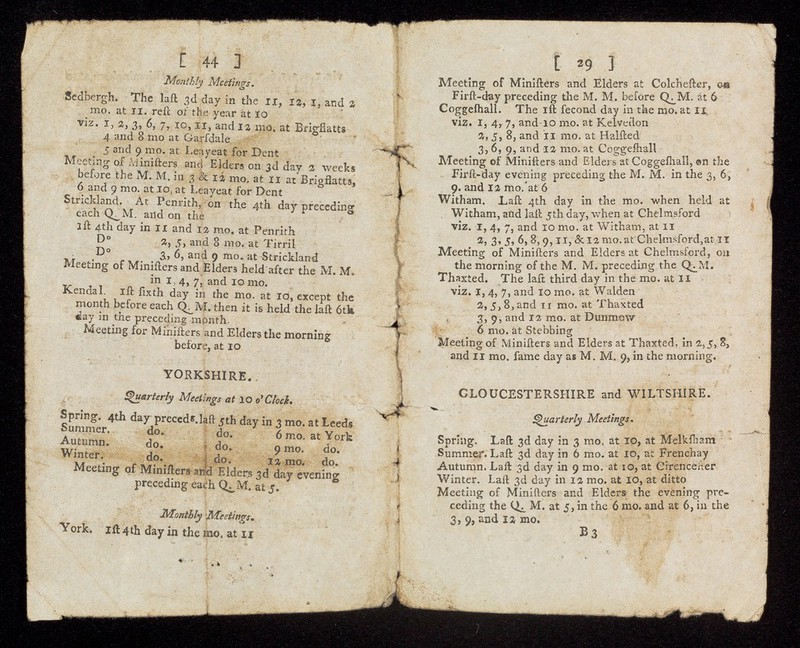 [ 44 ]
Monthly Meetings.
Sedbergh. The laſt 3d day in the 11, 12, 1, and 2
mo. at 11. reſt of the year at 10
viz. 1, 2, 3, 6, 7, 10, 11, and 12 mo. at Brigflatts
4 and 8 mo at Garſdale
5 and 9 mo. at Leayeat for Dent
Meeting of Miniſters and Elders on 3d day 2 weeks
before the M. M. in 3 & 12 mo. at 11 at Brigflatts,
6 and 9 mo. at 10, at Leayeat for Dent
Strickland. At Penrith, on the 4th day preceding
each Q. M. and on the
1ſt 4th day in 11 and 12 mo. at Penrith
Do 2, 5, and 8 mo. at Tirril
Do 3, 6, and 9 mo. at Strickland
Meeting of Miniſters and Elders held after the M. M.
in 1, 4, 7, and 10 mo.
Kendal. 1ſt ſixth day in the mo. at 10, except the
month before each Q. M. then it is held the laſt 6th
day in the preceding month.
Meeting for Miniſters and Elders the morning
before, at 10
YORKSHIRE.
Quarterly Meetings at 10 o'Clock.
Spring. 4th day precedg. laſt 5th day in 3 mo. at Leeds
Summer. do. do. 6 mo. at York
Autumn. do. do. 9 mo. do.
Winter. do. do. 12 mo. do.
Meeting of Miniſters and Elders 3d day evening
preceding each Q. M. at 5.
Monthly Meetings.
York. 1ſt 4th day in the mo. at 11
[ 29 ]
Meeting of Miniſters and Elders at Colcheſter, on
Firſt-day preceding the M. M. before Q. M. at 6
Coggeſhall. The 1ſt ſecond day in the mo. at 11
viz. 1, 4, 7, and 10 mo. at Kelvedon
2, 5, 8, and 11 mo. at Halſted
3, 6, 9, and 12 mo. at Coggeſhall
Meeting of Miniſters and Elders at Coggeſhall, on the
Firſt-day evening preceding the M. M. in the 3, 6,
9, and 12 mo. at 6
Witham. Laſt 4th day in the mo. when held at
Witham, and laſt 5th day, when at Chelmsford
viz. 1, 4, 7, and 10 mo. at Witham, at 11
2, 3, 5, 6, 8, 9, 11, & 12 mo. at Chelmsford, at 11
Meeting of Miniſters and Elders at Chelmsford, on
the morning of the M. M. preceding the Q. M.
Thaxted. The laſt third day in the mo. at 11
viz. 1, 4, 7, and 10 mo. at Walden
2, 5, 8, and 11 mo. at Thaxted
3, 9, and 12 mo. at Dunmow
6 mo. at Stebbing
Meeting of Miniſters and Elders at Thaxted, in 2, 5, 8,
and 11 mo. ſame day as M. M. 9, in the morning.
GLOUCESTERSHIRE and WILTSHIRE.
Quarterly Meetings.
Spring. Laſt 3d day in 3 mo. at 10, at Melkſham
Summer. Laſt 3d day in 6 mo. at 10, at Frenchay
Autumn. Laſt 3d day in 9 mo. at 10, at Cirenceſter
Winter. Laſt 3d day in 12 mo. at 10, at ditto
Meeting of Miniſters and Elders the evening pre-
ceding the Q. M. at 5, in the 6 mo. and at 6, in the
3, 9, and 12 mo.
B 3